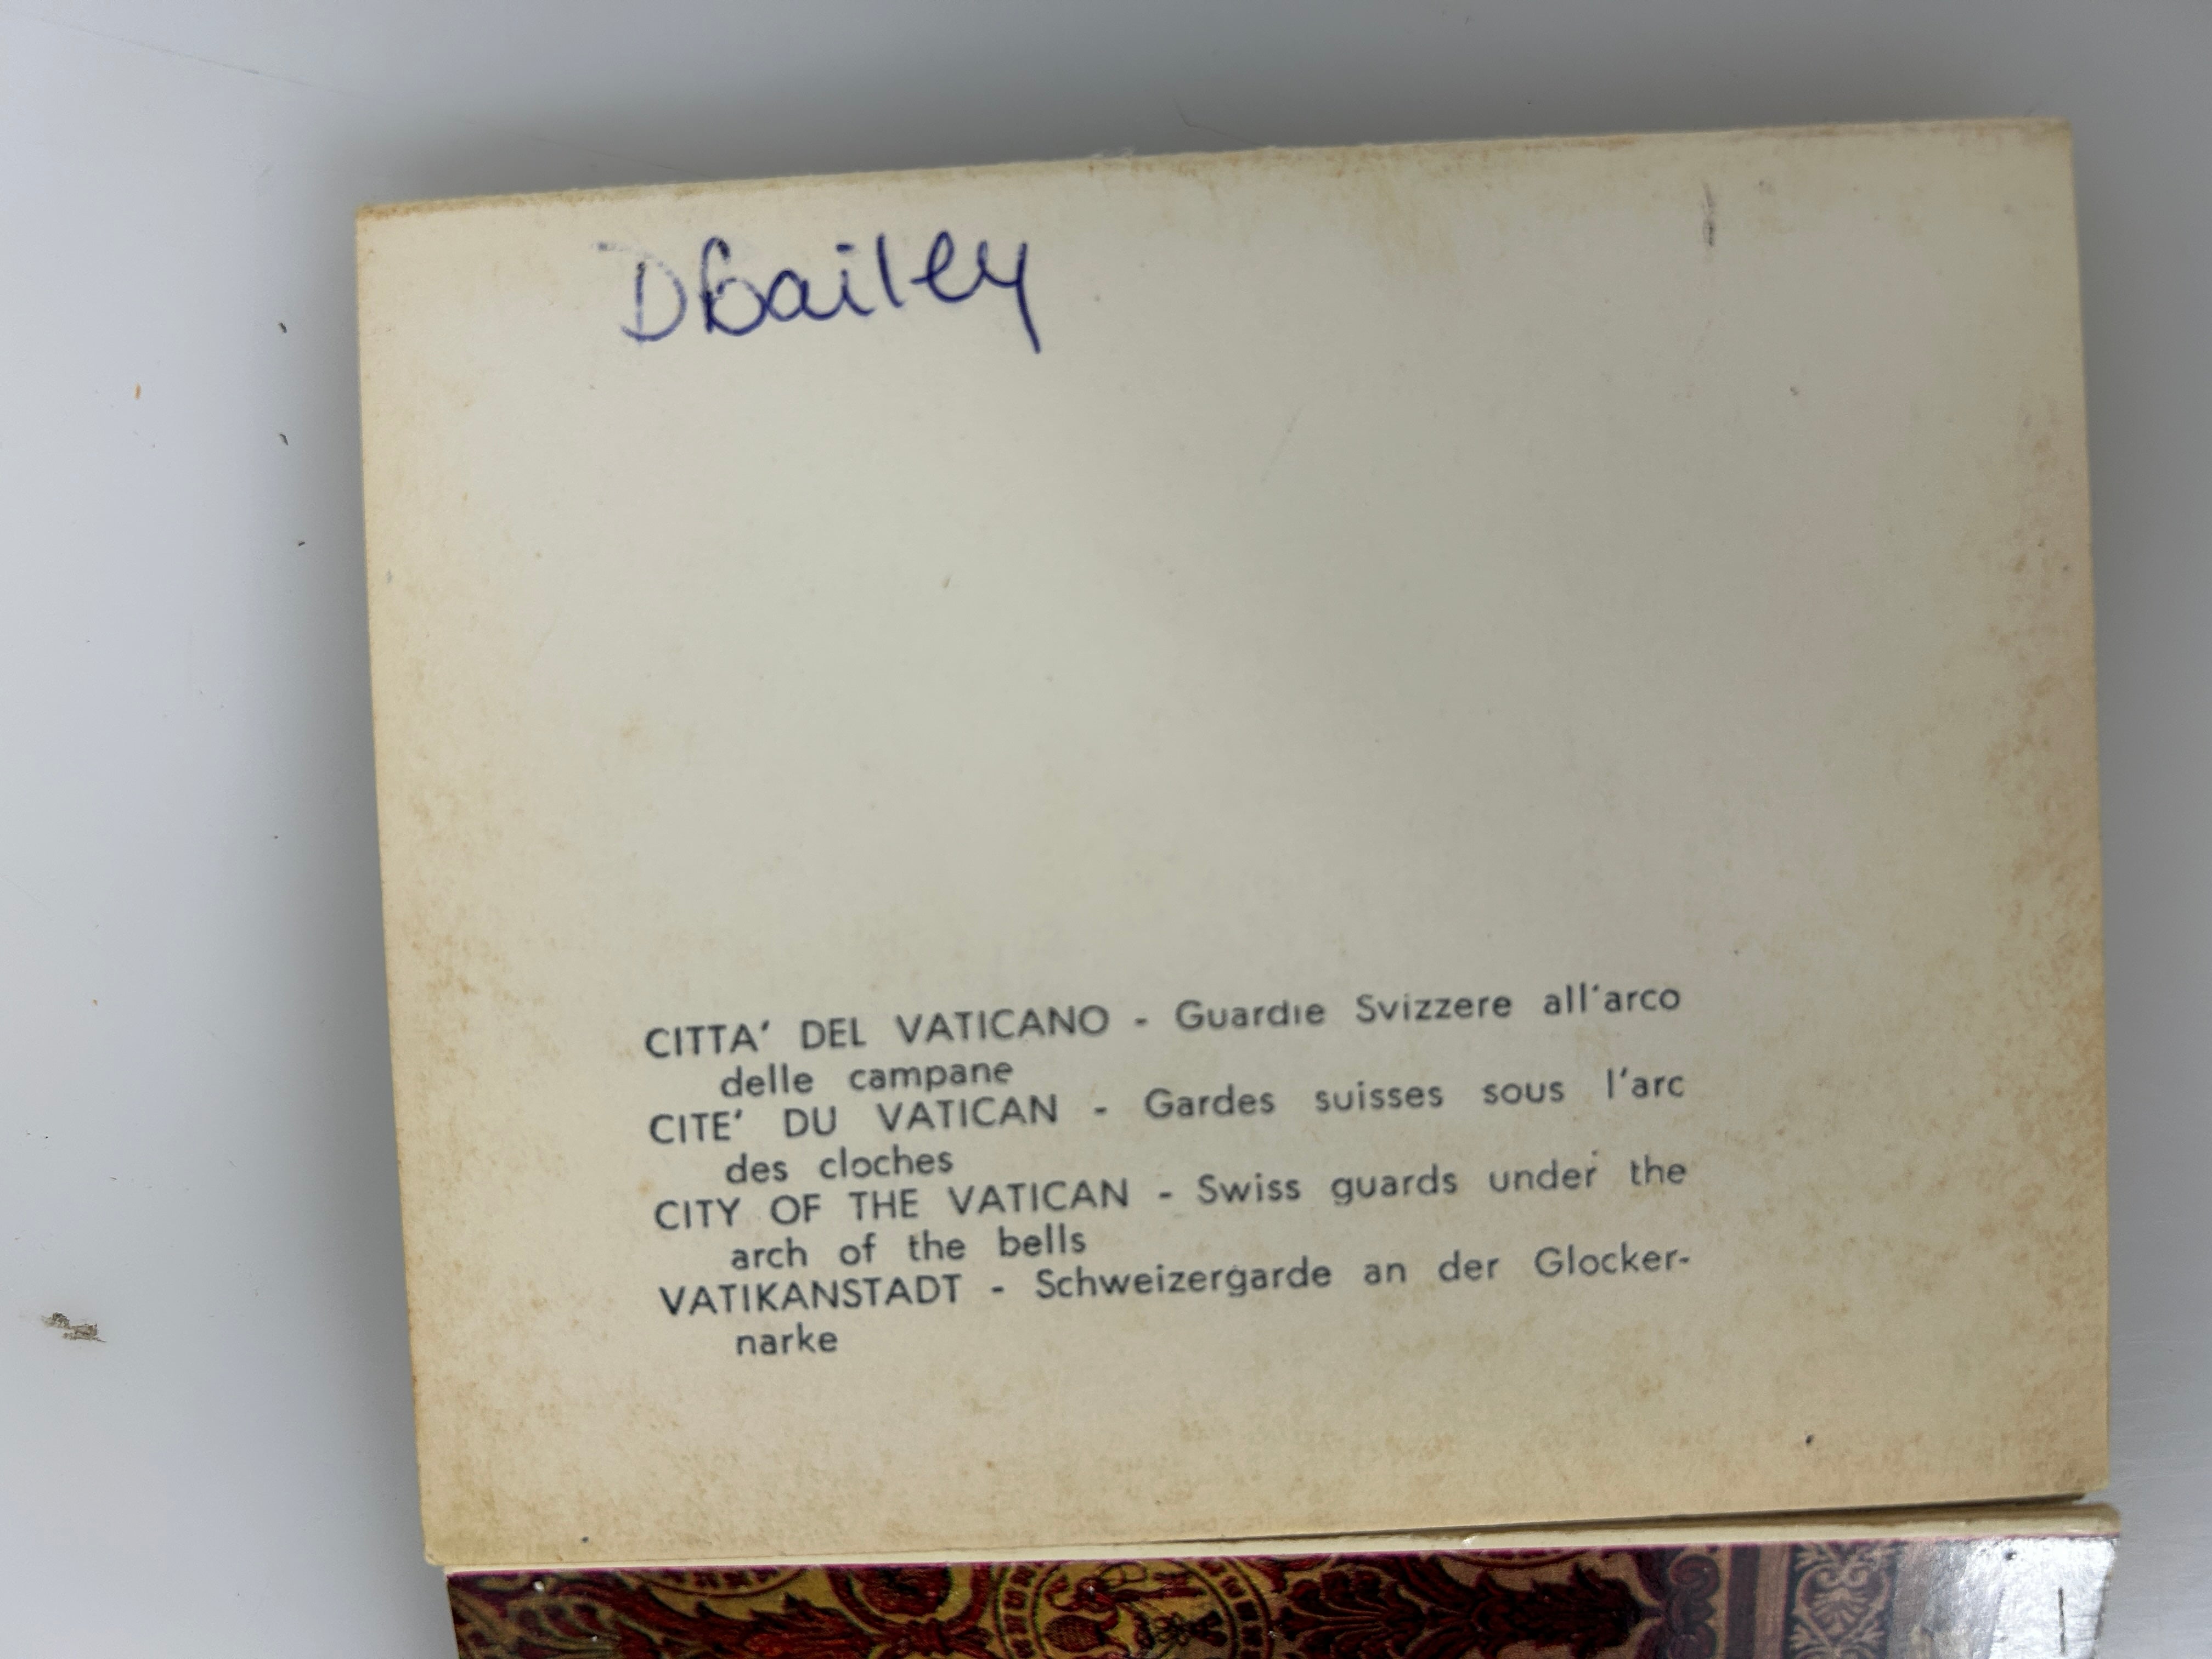 DBailey
CITTA' DEL VATICANO - Guardie Svizzere all'arco
delle campane
CITE' DU VATICAN - Gardes suisses sous l'arc
des cloches
CITY OF THE VATICAN - Swiss guards under the
arch of the bells
VATIKANSTADT - Schweizergarde an der Glocker-
narke